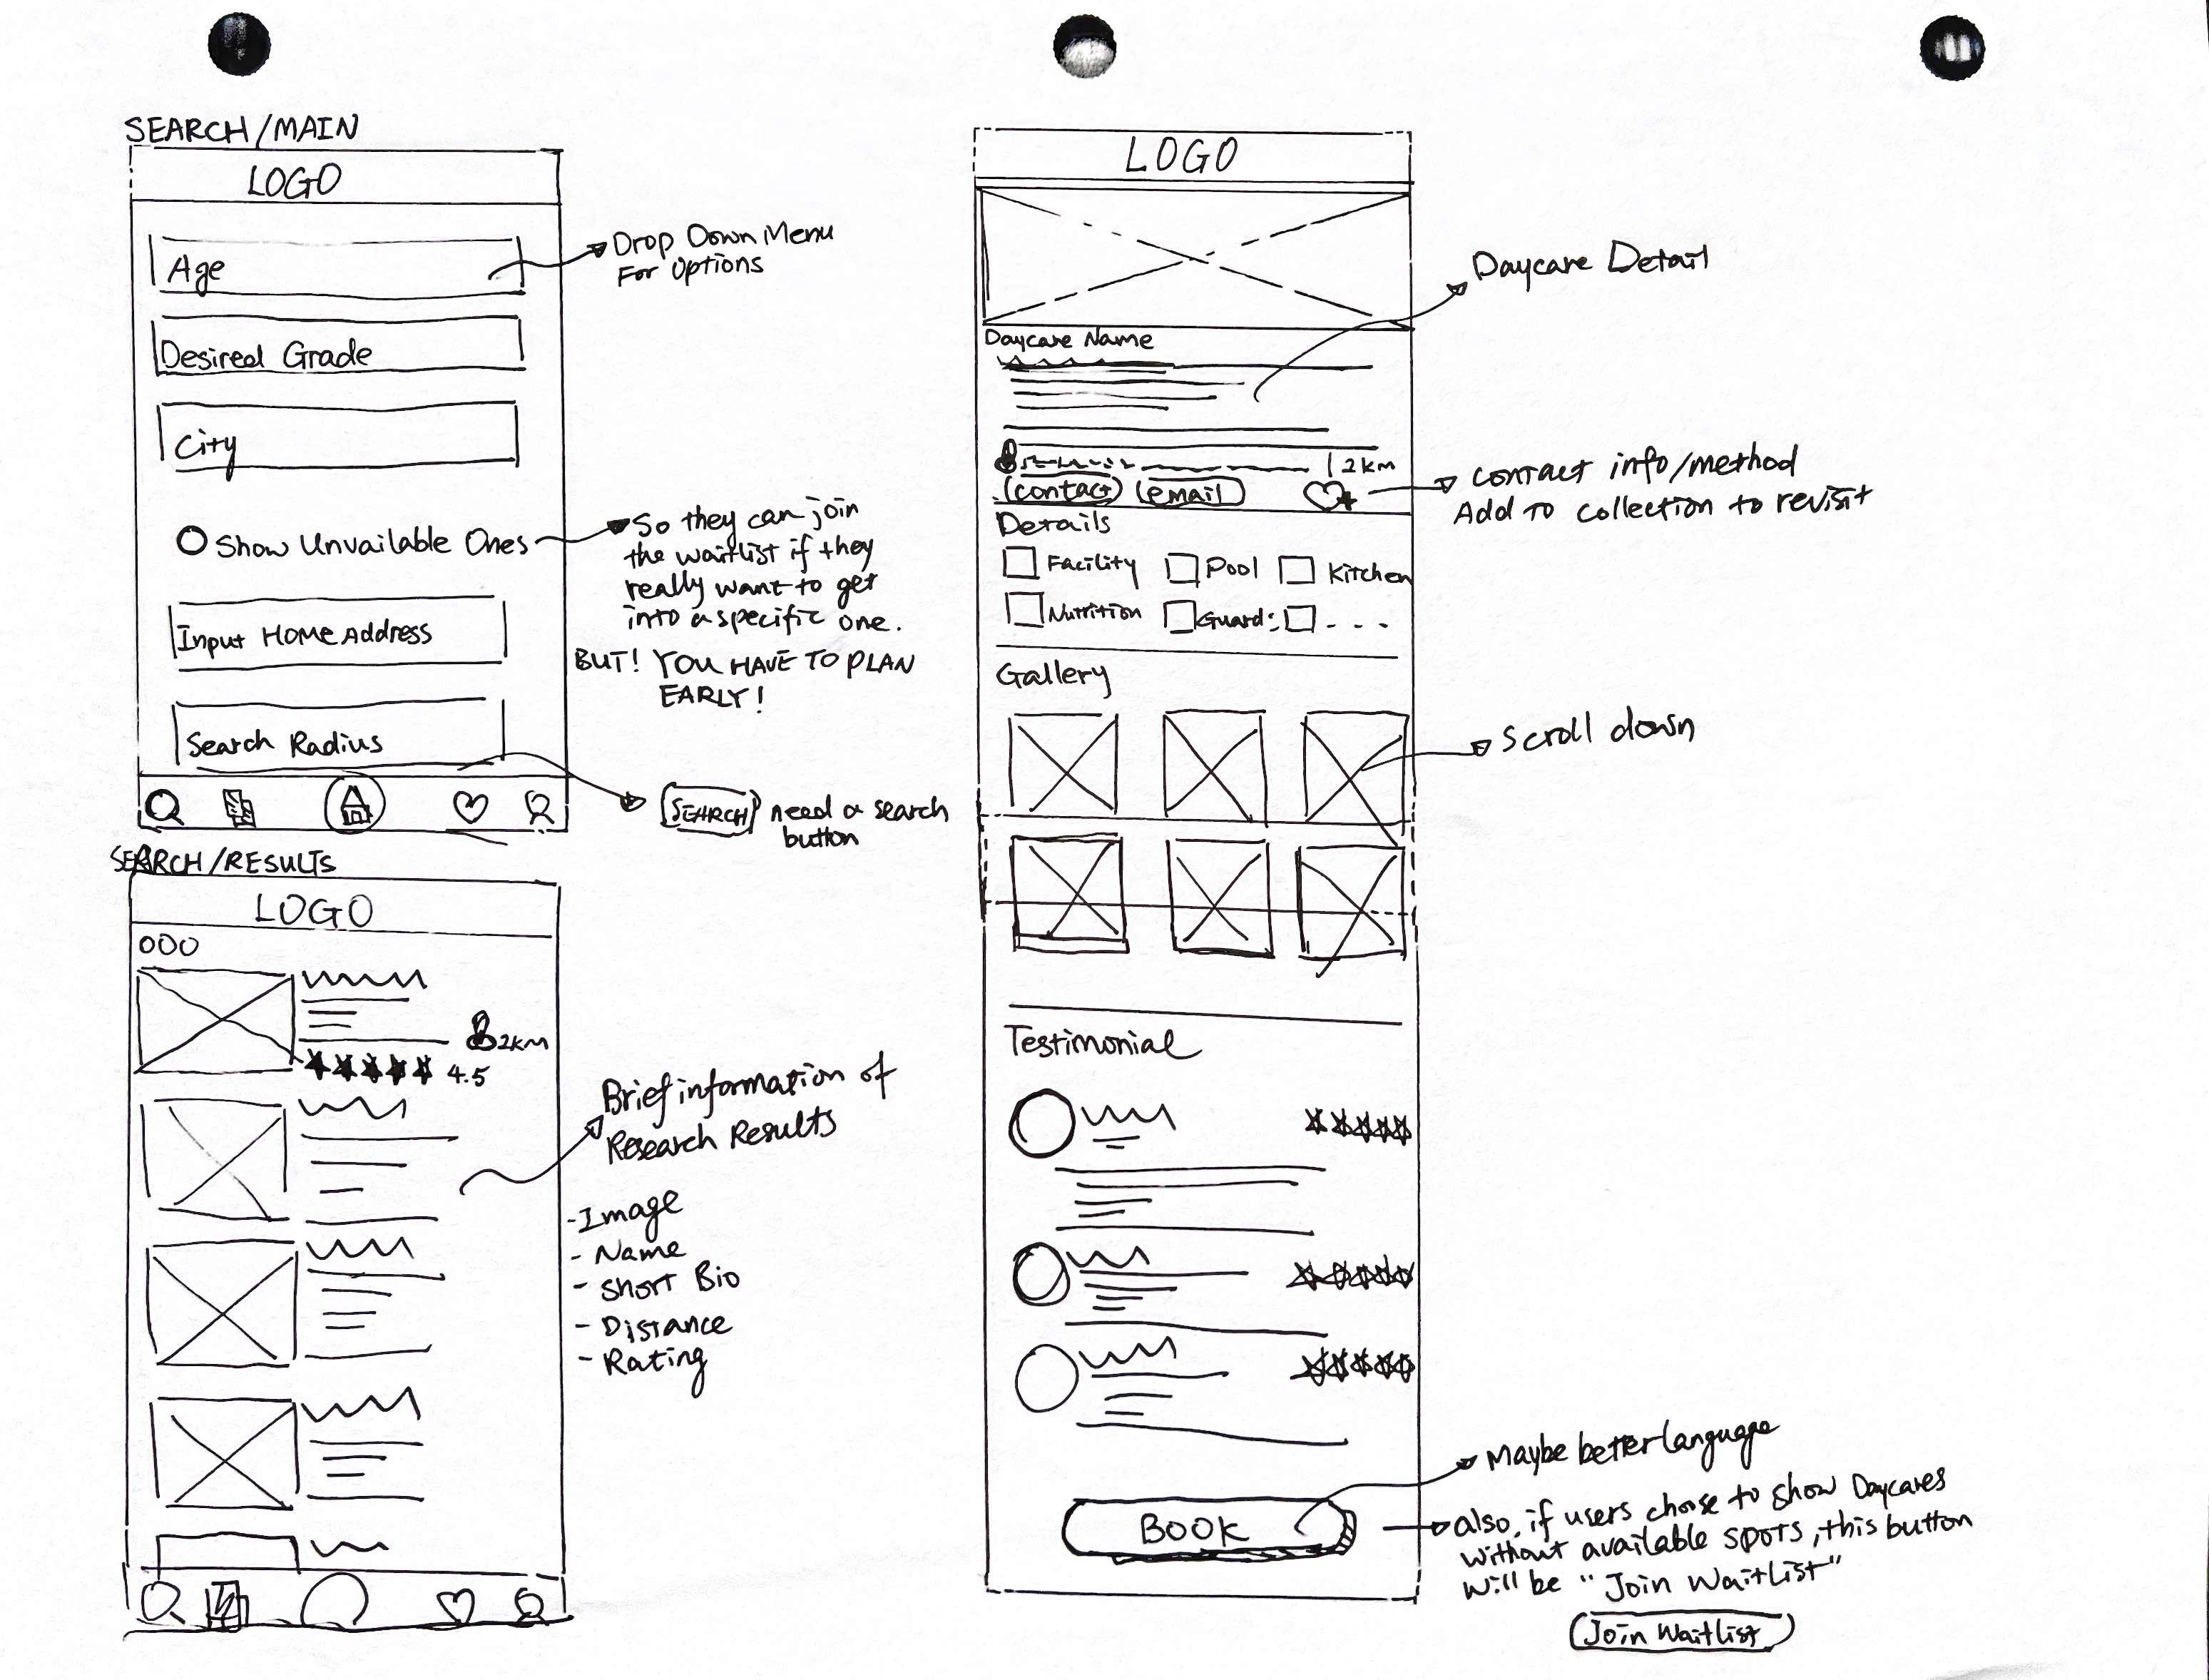 SEARCH/MAIN
LOGO
Age
Drop Down Menu
For Options
Desired Grade
City
Show Unvailable Ones
So they can join
the waitlist if they
really want to get
into a specific one.
BUT! YOU HAVE TO PLAN
EARLY!
Input HOME Address
Search Radius
SEARCH need a search
button
SEARCH/RESULTS
LOGO
2KM
4.5
Brief information of
Research Results
- Image
- Name
- Short Bio
- Distance
- Rating
LOGO
Daycare Detail
Daycare Name
2km
contact email
Contact info/method
Add to collection to revisit
Details
Facility Pool Kitchen
Nutrition Guard
Gallery
Scroll down
Testimonial
Maybe better language
BOOK
also, if users choose to show Daycares
without available spots, this button
will be "Join Waitlist"
Join Waitlist